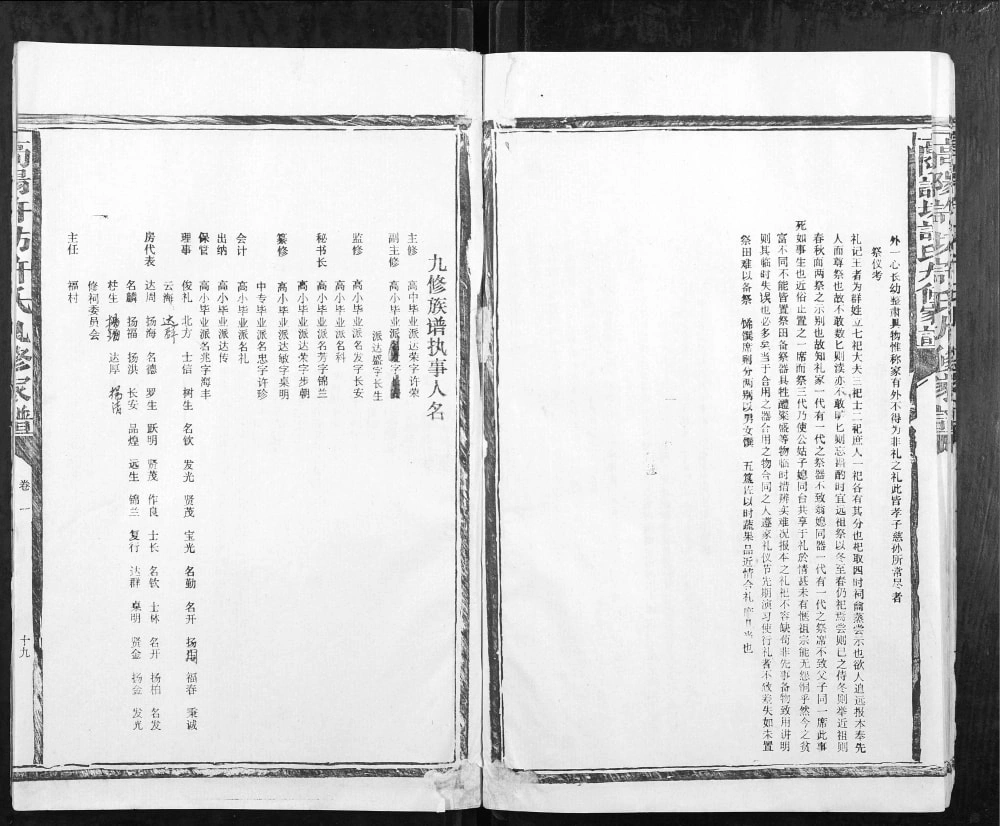 外一心长幼整肃具物惟称家有外不得为非礼之礼此皆孝子慈孙所常尽者
祭仪考
礼记王者为群姓立七祀大夫三祀士二祀庶人一祀各有其分也祀取四时祠禴蒸尝示也欲人追远报本奉先
人而尊祭也故不敢数匕则渎亦不敢旷匕则忘酌时宜远祖祭以冬至春仍祀焉尝则已之侍冬则举近祖则
春秋而两祭之示别也故知礼家一代有一代之祭器不致翁媳同器一代有一代之祭席不致父子同一席此事
死如事生也近俗止置之一席而祭三代乃使公姑子媳同台共享于礼於情甚未有惬祖宗能无怨恫乎然今之贫
富不同不能皆置祭田备祭器具牲醴粢盛等物临时措辨实难况报本之礼祀不容缺苟非先事备物致用讲明
则其临时失误也必多矣当于合用之器合用之物合同之人遵家礼仪节先期演习使行礼者不致差失如未置
祭田难以备祭 馐馔席刷分两别以男女馔 五簋佐以时蔬果品近情合礼 当也
九修族谱执事人名
主修 高中毕业派名荣字许荣
副主修 高小毕业派名字
派达盛字长生
监修 高小毕业派名发字长安
高小毕业派名科
秘书长 高小毕业派名芳字锦兰
高小毕业派达荣字步朝
纂修 高小毕业派达敏字桌明
中专毕业派名忠字许珍
会计 高小毕业派名礼
出纳 高小毕业派达传
保管 高小毕业派名兆字海丰
理事 俊礼 北方 士信 树生 名钦 发光 贤茂 宝光 名勤 名开 扬 福春 秉诚
云海 达科
房代表 达周 扬海 名德 罗生 跃明 贤茂 作良 士长 名钦 士林 名开 扬柏 名发
名麟 扬福 扬洪 长安 品煌 远生 锦兰 复行 达群 桌明 贤金 扬金 发光
桂生 达厚
修祠委员会
主任 福村
卷一
十九